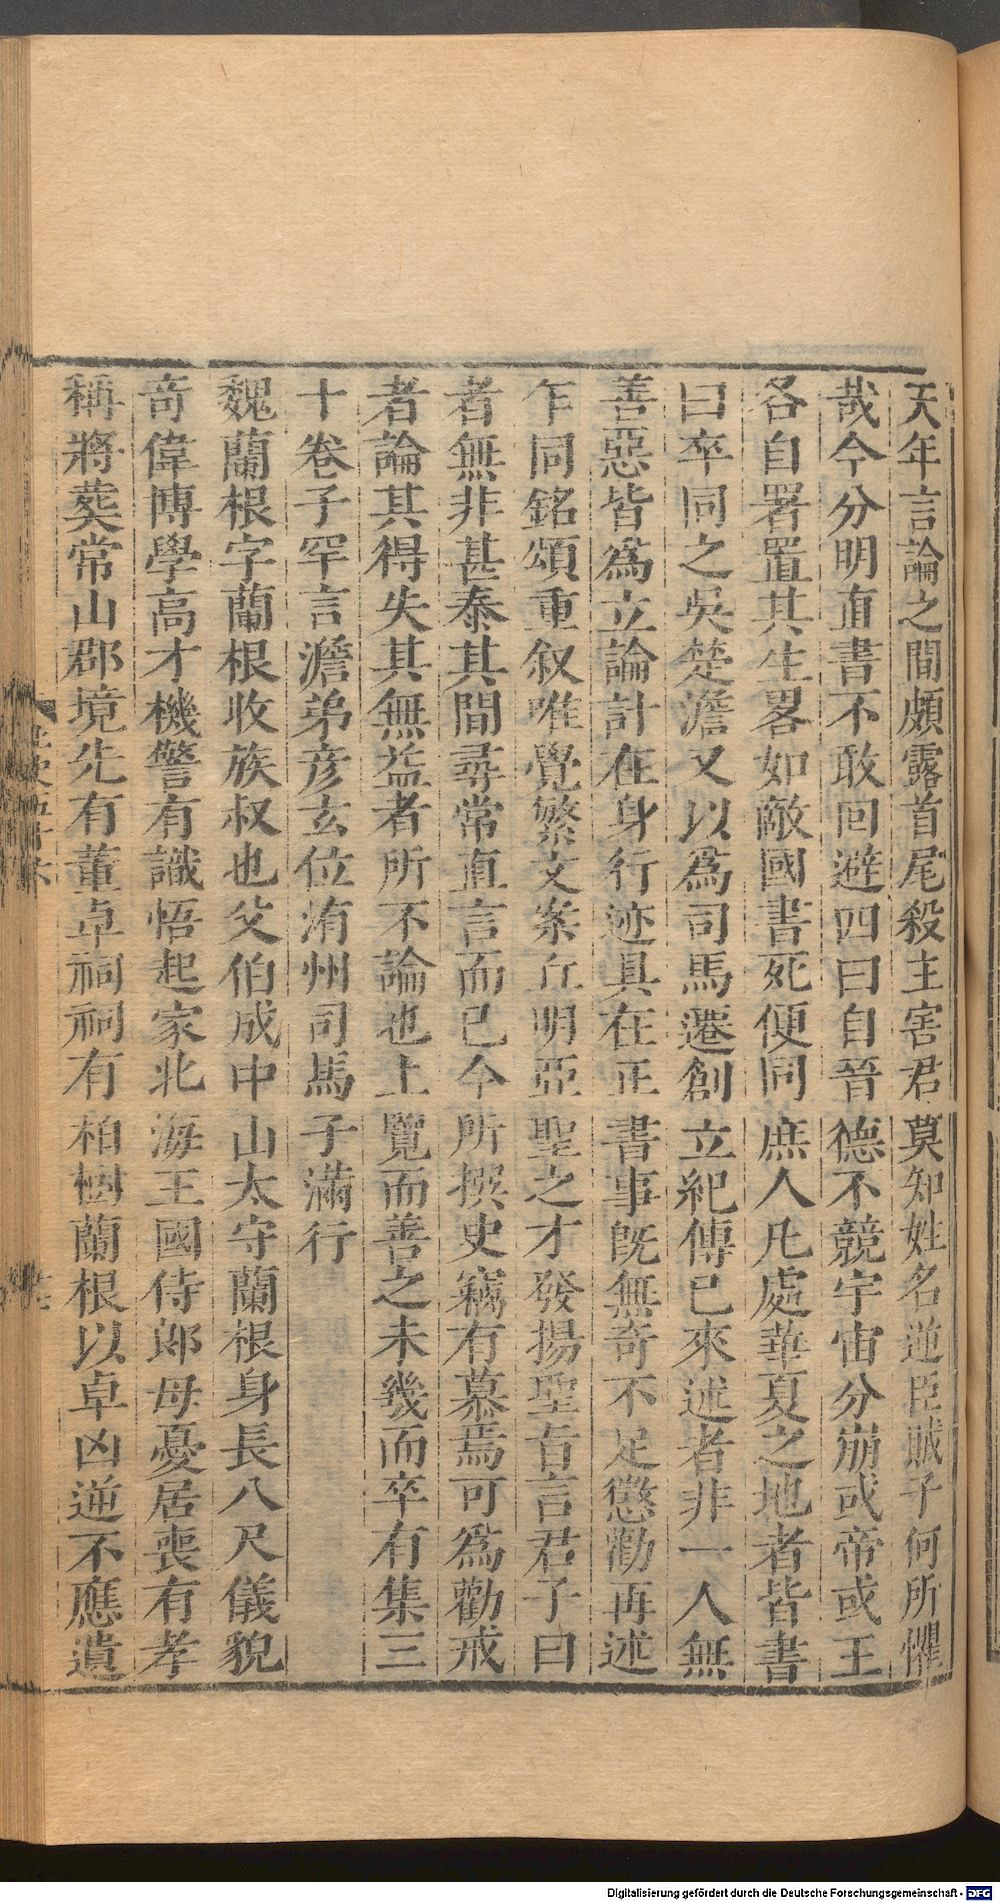 天年言論之間頗露首尾殺主害君莫知姓名逆臣賊子何所懼
哉今分明直書不敢回避四曰自晉德不競宇宙分崩或帝或王
各自署置其生畧如敵國書死便同庶人凡處華夏之地者皆書
曰卒同之吳楚澹又以爲司馬遷創立紀傳已來述者非一人無
善惡皆爲立論計在身行迹具在正書事旣無奇不足懲勸再述
乍同銘頌重叙唯覺繁文案丘明亞聖之才發揚聖旨言君子曰
者無非甚泰其間尋常直言而已今所撰史竊有慕焉可爲勸戒
者論其得失其無益者所不論也上覽而善之未幾而卒有集三
十卷子罕言澹弟彦玄位洧州司馬子滿行
魏蘭根字蘭根收族叔也父伯成中山太守蘭根身長八尺儀貌
竒偉博學高才機警有識悟起家北海王國侍郎母憂居喪有孝
稱將葬常山郡境先有董卓祠祠有柏樹蘭根以卓凶逆不應遺
Digitalisierung gefördert durch die Deutsche Forschungsgemeinschaft - DFG